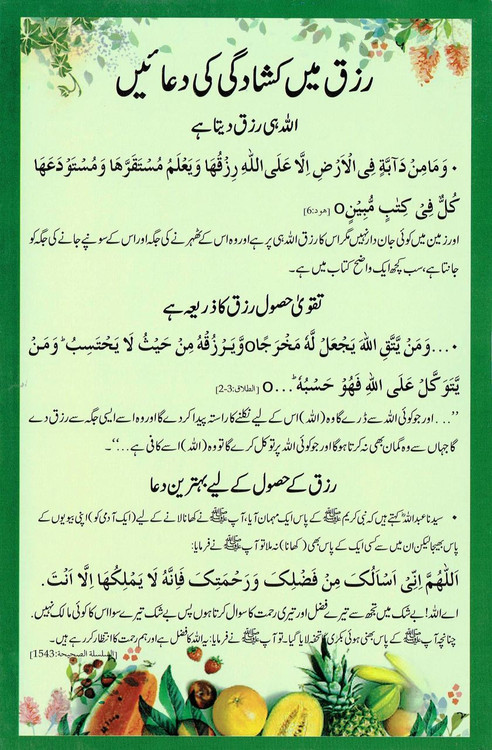 رزق میں کشادگی کی دعائیں
اللہ ہی رزق دیتا ہے
• وَمَا مِنْ دَآبَّةٍ فِى الْاَرْضِ اِلَّا عَلَى اللّٰهِ رِزْقُهَا وَيَعْلَمُ مُسْتَقَرَّهَا وَمُسْتَوْدَعَهَا
كُلٌّ فِىْ كِتٰبٍ مُّبِيْنٍ o [هود:6]
اور زمین میں کوئی جان دار نہیں مگر اس کا رزق اللہ ہی پر ہے اور وہ اس کے ٹھہرنے کی جگہ اور اس کے سونپے جانے کی جگہ کو
جانتا ہے، سب کچھ ایک واضح کتاب میں ہے۔
تقویٰ حصول رزق کا ذریعہ ہے
• ...وَمَنْ يَّتَّقِ اللّٰهَ يَجْعَلْ لَّهٗ مَخْرَجًا o وَّيَرْزُقْهُ مِنْ حَيْثُ لَا يَحْتَسِبُ ؕ وَمَنْ
يَّتَوَكَّلْ عَلَى اللّٰهِ فَهُوَ حَسْبُهٗ ؕ ... o [الطلاق:3-2]
''... اور جو کوئی اللہ سے ڈرے گا وہ (اللہ) اس کے لیے نکلنے کا راستہ پیدا کر دے گا اور وہ اسے ایسی جگہ سے رزق دے
گا جہاں سے وہ گمان بھی نہ کرتا ہو گا اور جو کوئی اللہ پر توکل کرے گا تو وہ (اللہ) اسے کافی ہے...''۔
رزق کے حصول کے لیے بہترین دعا
• سیدنا عبداللہؓ کہتے ہیں کہ نبی کریم ﷺ کے پاس ایک مہمان آیا، آپ ﷺ نے کھانا لانے کے لیے (ایک آدمی کو) اپنی بیویوں کے
پاس بھیجا لیکن ان میں سے کسی ایک کے پاس بھی (کھانا) نہ ملا تو آپ ﷺ نے فرمایا:
اَللّٰهُمَّ اِنِّىْ اَسْاَلُكَ مِنْ فَضْلِكَ وَرَحْمَتِكَ فَاِنَّهٗ لَا يَمْلِكُهَا اِلَّا اَنْتَ.
اے اللہ! بے شک میں تجھ سے تیرے فضل اور تیری رحمت کا سوال کرتا ہوں پس بے شک تیرے سوا اس کا کوئی مالک نہیں۔
چنانچہ آپ ﷺ کے پاس بھنی ہوئی بکری کا تحفہ لایا گیا۔ تو آپ ﷺ نے فرمایا: یہ اللہ کا فضل ہے اور ہم رحمت کا انتظار کر رہے ہیں۔
[السلسلة الصحيحة:1543]